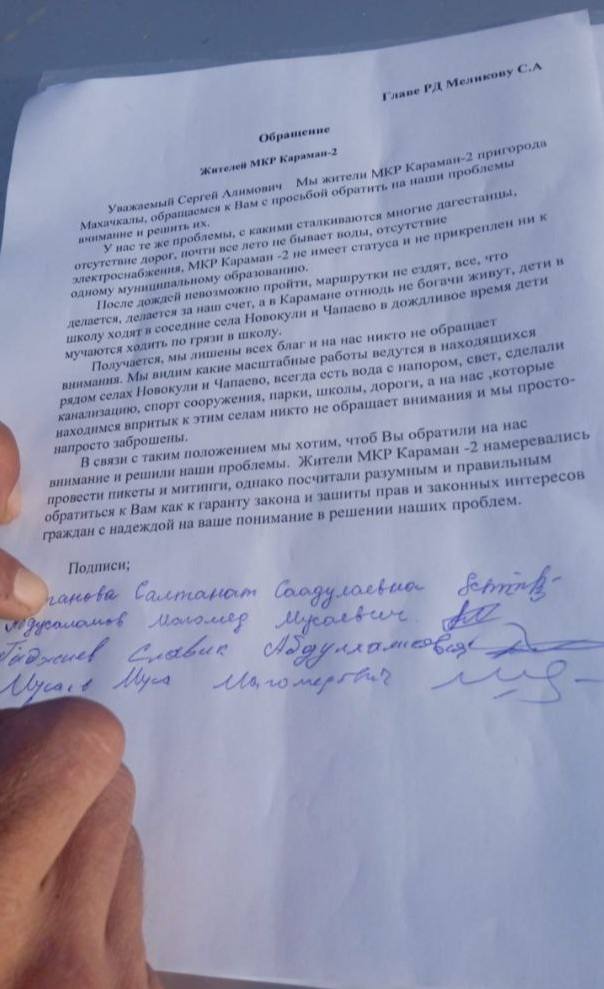 Главе РД Меликову С.А
Обращение
Жителей МКР Караман-2
Уважаемый Сергей Алимович Мы жители МКР Караман-2 пригорода
Махачкалы, обращаемся к Вам с просьбой обратить на наши проблемы
внимание и решить их.
У нас те же проблемы, с какими сталкиваются многие дагестанцы,
отсутствие дорог, почти все лето не бывает воды, отсутствие
электроснабжения, МКР Караман -2 не имеет статуса и не прикреплен ни к
одному муниципальному образованию.
После дождей невозможно пройти, маршрутки не ездят, все, что
делается, делается за наш счет, а в Карамане отнюдь не богачи живут, дети в
школу ходят в соседние села Новокули и Чапаево в дождливое время дети
мучаются ходить по грязи в школу.
Получается, мы лишены всех благ и на нас никто не обращает
внимания. Мы видим какие масштабные работы ведутся в находящихся
рядом селах Новокули и Чапаево, всегда есть вода с напором, свет, сделали
канализацию, спорт сооружения, парки, школы, дороги, а на нас ,которые
находимся впритык к этим селам никто не обращает внимания и мы просто-
напросто заброшены.
В связи с таким положением мы хотим, чтоб Вы обратили на нас
внимание и решили наши проблемы. Жители МКР Караман -2 намеревались
провести пикеты и митинги, однако посчитали разумным и правильным
обратиться к Вам как к гаранту закона и зашиты прав и законных интересов
граждан с надеждой на ваше понимание в решении наших проблем.
Подписи;
Салтанат Саадулаевна
Магомед Мусаевич
Гаджиев Славик
Муса Магомедович